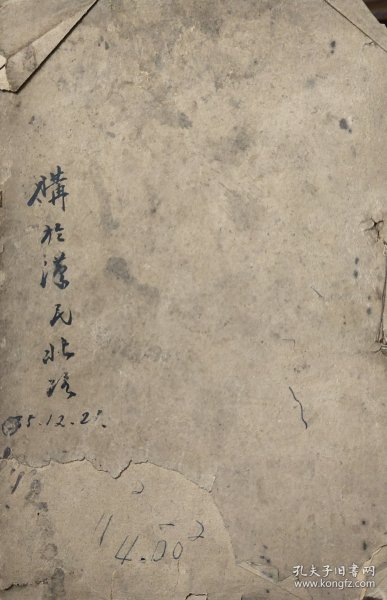 購於漢民北路
35.12.25.
2
4.00
孔夫子旧书网
www.kongfz.com